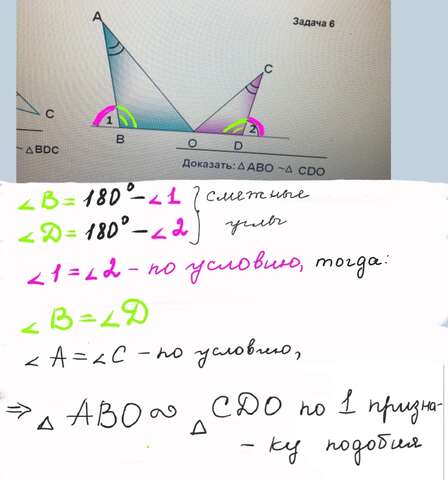 Задача 6
A
C
1
2
C
B
O
D
~ △BDC
Доказать: △ABO ~ △ CDO
∠B = 180° - ∠1 } смежные
∠D = 180° - ∠2 } углы
∠1 = ∠2 - по условию, тогда:
∠B = ∠D
∠A = ∠C - по условию,
⇒ △ ABO ∾ △ CDO по 1 призна-
- ку подобия